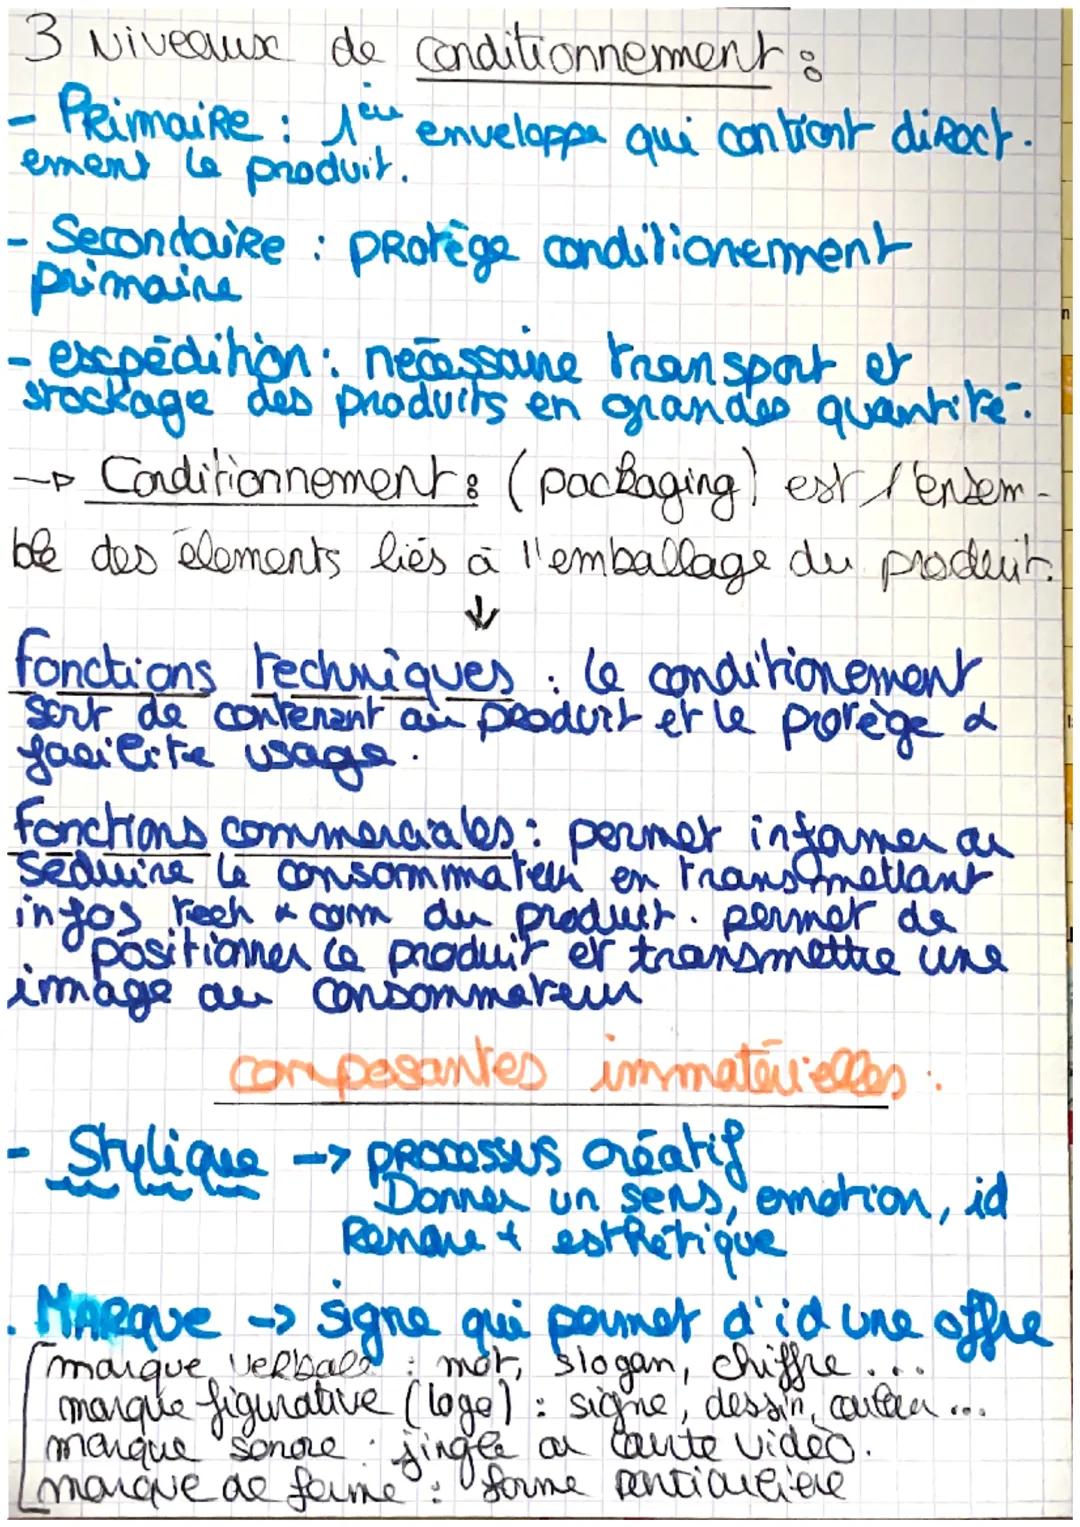 3 Niveaux de conditionnement :
- Primaire : 1ère enveloppe qui contient direct-
ement le produit.
- Secondaire : protège conditionement
primaire
- expédition : nécessaire transport et
stockage des produits en grandes quantité.
→ Conditionnement : (packaging) est l'ensem-
ble des élements liés à l'emballage du produit.
↓
fonctions techniques : le conditionement
sert de contenant au produit et le protège &
facilite usage.
fonctions commerciales : permet informer ou
séduire le consommateur en transmettant
infos tech & com du produit. permet de
positionner le produit et transmettre une
image au consommateur
composantes immatérielles :
- Stylique → processus créatif
Donner un sens, emotion, id
Rendre + esthétique
. Marque → signe qui permet d'id une offre
marque verbale : mot, slogan, chiffre ...
marque figurative (logo) : signe, dessin, couleur ...
marque sonore : jingle ou courte vidéo.
marque de forme : forme particulière